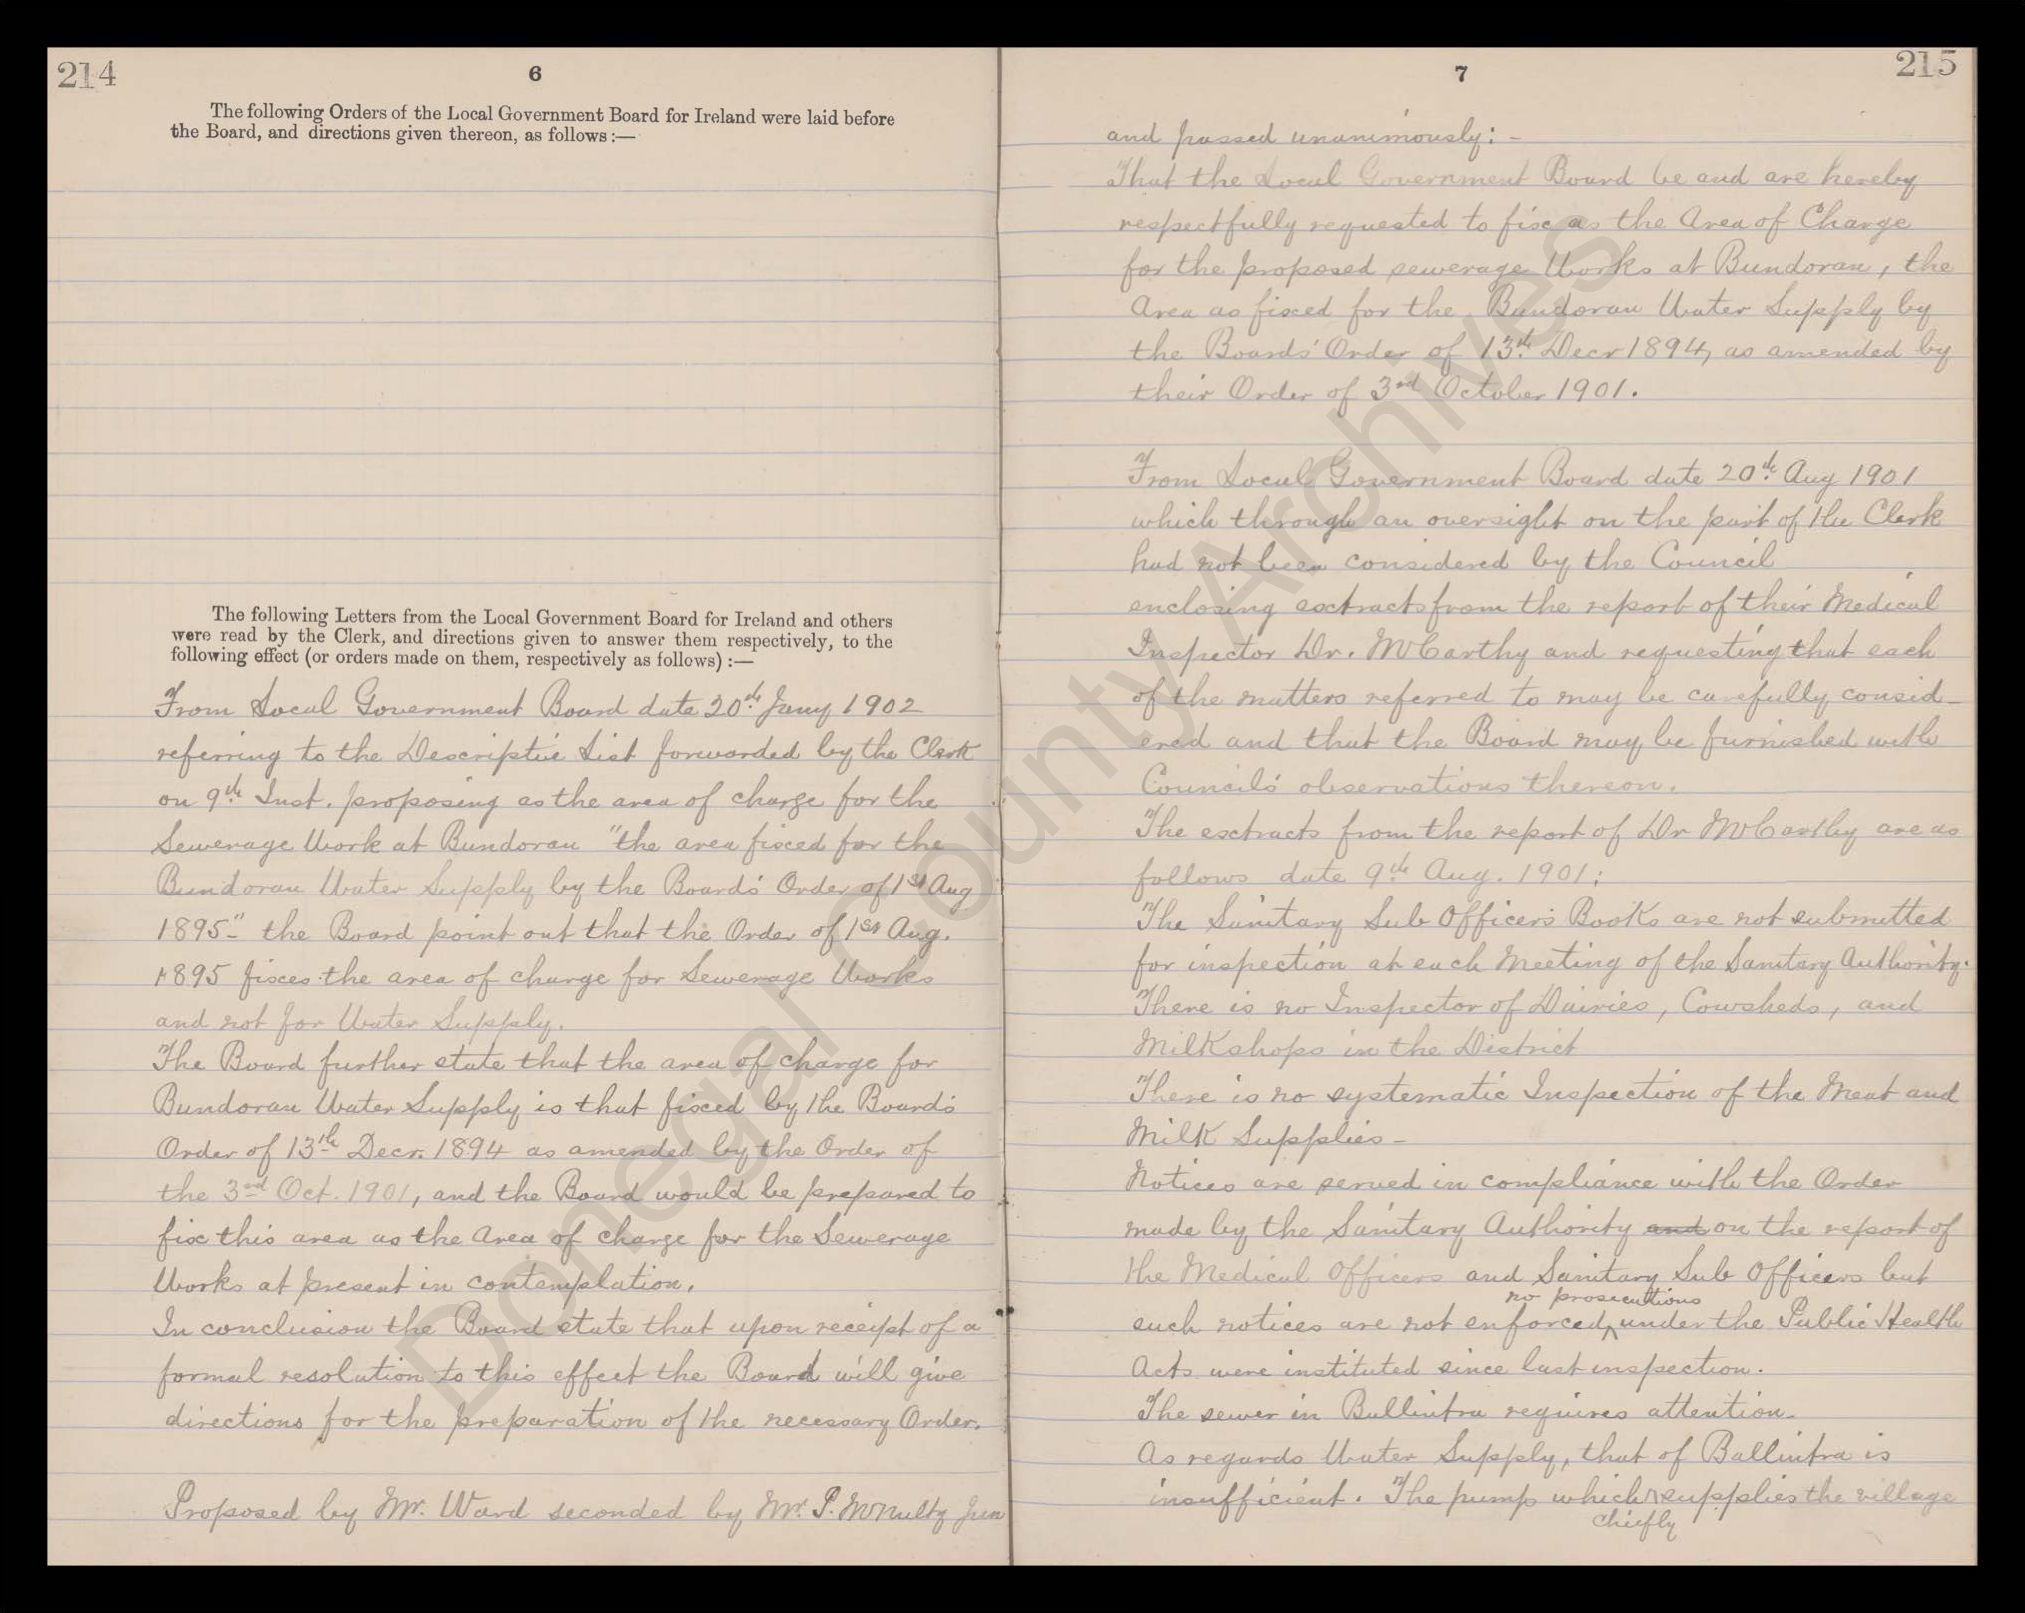 214
6
The following Orders of the Local Government Board for Ireland were laid before
the Board, and directions given thereon, as follows :—
The following Letters from the Local Government Board for Ireland and others
were read by the Clerk, and directions given to answer them respectively, to the
following effect (or orders made on them, respectively as follows) :—
From Local Government Board date 20th Jany 1902
referring to the Descriptive List forwarded by the Clerk
on 9th Inst. proposing as the area of charge for the
Sewerage Work at Bundoran "the area fixed for the
Bundoran Water Supply by the Boards' Order of 1st Aug
1895" the Board point out that the Order of 1st Aug.
1895 fixes the area of charge for Sewerage Works
and not for Water Supply.
The Board further state that the area of charge for
Bundoran Water Supply is that fixed by the Board's
Order of 13th Decr. 1894 as amended by the Order of
the 3rd Oct. 1901, and the Board would be prepared to
fix this area as the Area of charge for the Sewerage
Works at present in contemplation.
In conclusion the Board state that upon receipt of a
formal resolution to this effect the Board will give
directions for the preparation of the necessary Order.
Proposed by Mr. Ward seconded by Mr. P. McNulty Jun
7
215
and passed unanimously: -
That the Local Government Board be and are hereby
respectfully requested to fix as the Area of Charge
for the proposed sewerage Works at Bundoran, the
Area as fixed for the Bundoran Water Supply by
the Boards' Order of 13th Decr 1894, as amended by
their Order of 3rd October 1901.
From Local Government Board date 20th Aug 1901
which through an oversight on the part of the Clerk
had not been considered by the Council
enclosing extracts from the report of their Medical
Inspector Dr. McCarthy and requesting that each
of the matters referred to may be carefully consid-
ered and that the Board may be furnished with
Council's observations thereon.
The extracts from the report of Dr McCarthy are as
follows date 9th Aug. 1901:
The Sanitary Sub Officers Books are not submitted
for inspection at each Meeting of the Sanitary Authority.
There is no Inspector of Dairies, Cowsheds, and
Milkshops in the District
There is no systematic Inspection of the Meat and
Milk Supplies-
Notices are served in compliance with the Order
made by the Sanitary Authority and on the report of
the Medical Officers and Sanitary Sub Officers but
no prosecutions
such notices are not enforced, under the Public Health
Acts were instituted since last inspection.
The sewer in Ballintra requires attention-
As regards Water Supply, that of Ballintra is
insufficient. The pump which supplies the village
chiefly
Donegal County Archives